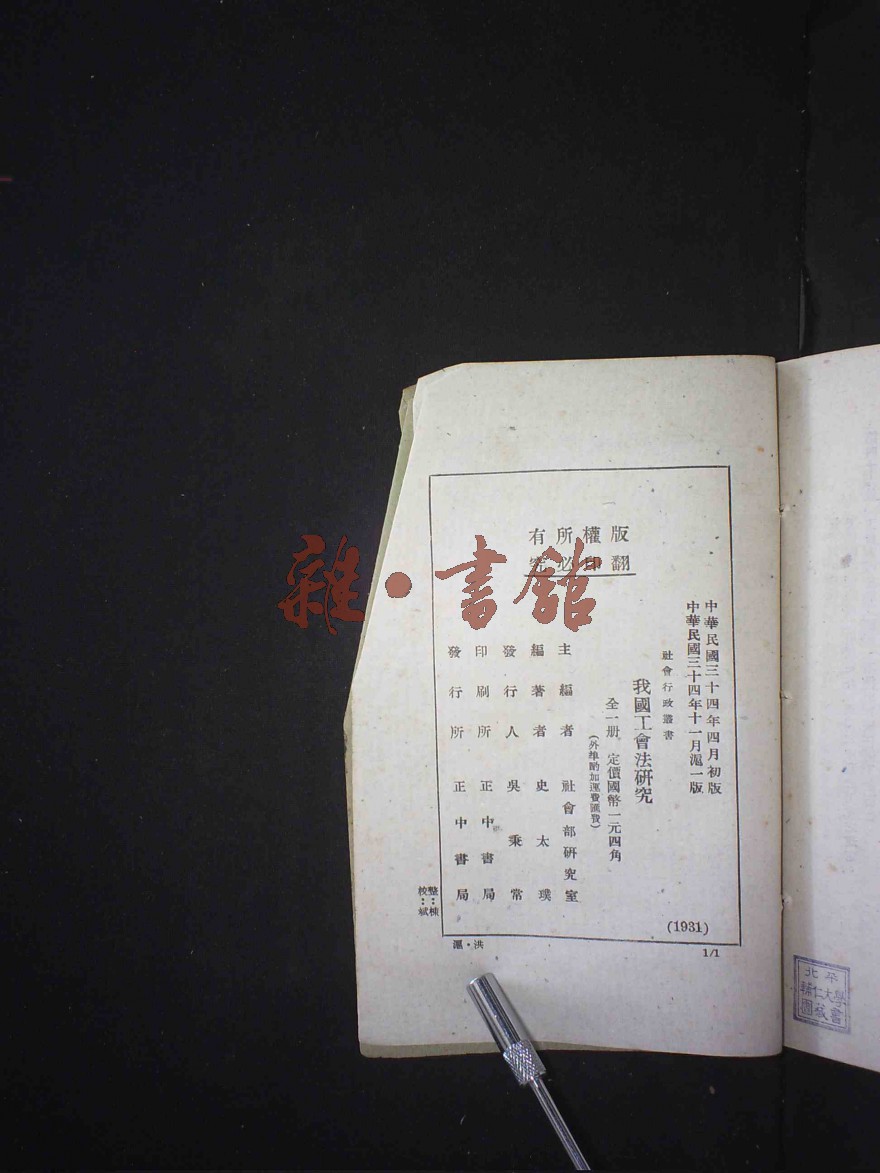 版權所有
翻印必究
中華民國三十四年四月初版
中華民國三十四年十一月滬一版
社會行政叢書
我國工會法研究
全一册 定價國幣一元四角
(外埠酌加運費匯費)
主編者 社會部研究室
編著者 史太璞
發行人 吳秉常
印刷所 正中書局
發行所 正中書局
(1931)
整:楨
校:斌
滬·洪
1/1
雜·書館
北平
輔仁大學
圖書